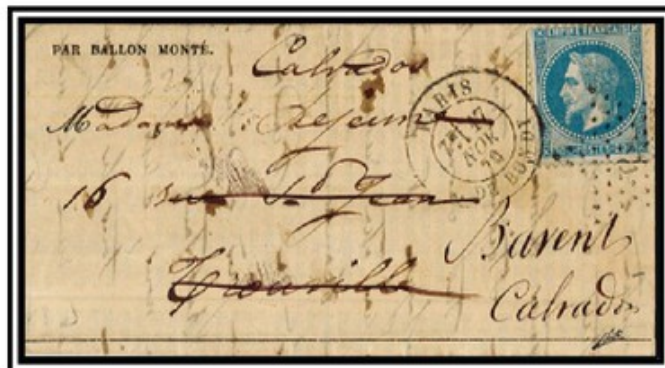 PAR BALLON MONTÉ.
Calvados
Madame Lejeune
16 rue St Jean
Trouville
Bavent
Calvados
PARIS
17
NOV
70
EMPIRE FRANÇAIS